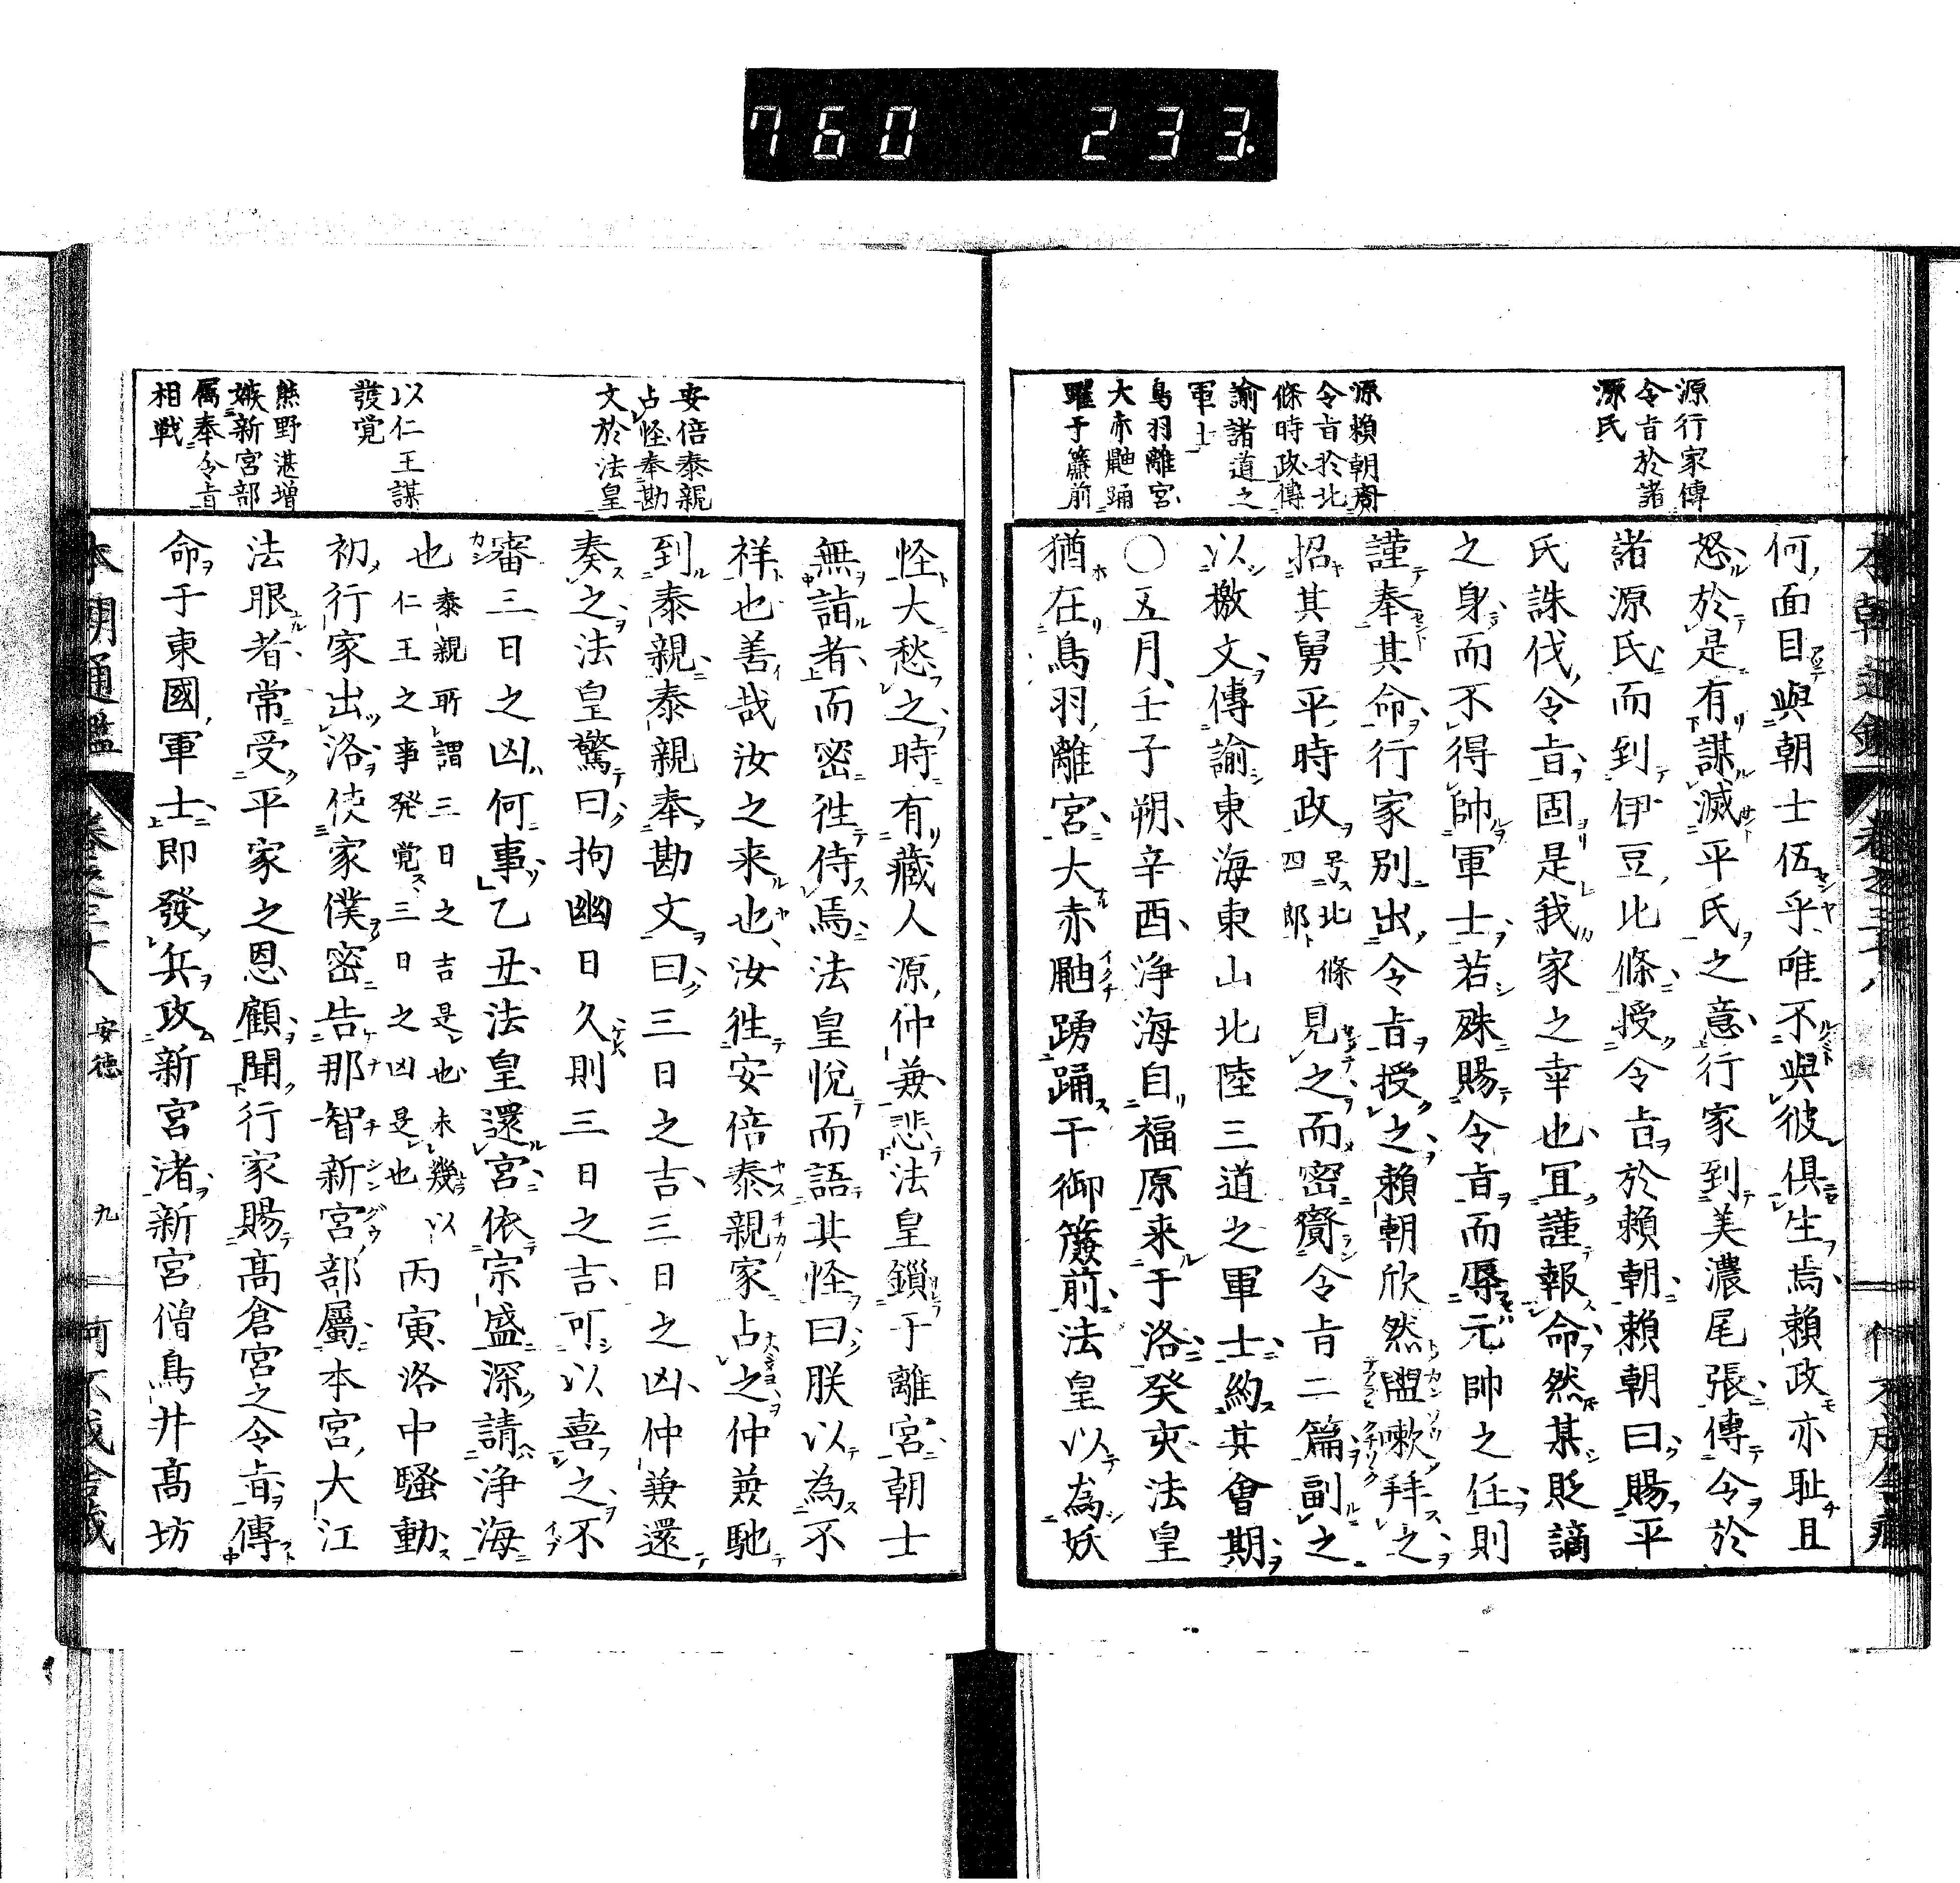 760 233.
源行家傳
令旨於諸
源氏
源賴朝齎
令旨於北
條時政傳
諭諸道之
軍士
鳥羽離宮
大赤鼬踊
躍于簾前
何面目與朝士伍乎唯不與彼俱生焉賴政亦恥且
怒於是有謀滅平氏之意行家到美濃尾張傳令於
諸源氏而到伊豆北條授令旨於賴朝賴朝曰賜平
氏誅伐令旨固是我家之幸也宜謹報命然某貶謫
之身而不得帥軍士若殊賜令旨而辱元帥之任則
謹奉其命行家別出令旨授之賴朝欣然盥嗽拜之
招其舅平時政号北條四郎見之而密齎令旨二篇副之
以檄文傳諭東海東山北陸三道之軍士約其會期
〇五月壬子朔辛酉淨海自福原来于洛癸亥法皇
猶在鳥羽離宮大赤鼬踴踊于御簾前法皇以為妖
安倍泰親
占怪奉勘
文於法皇
以仁王謀
發覚
熊野湛増
嫉新宮部
属奉令旨
相戦
怪大愁之時有藏人源仲兼悲法皇鎖于離宮朝士
無詣者而密往侍焉法皇悅而語其怪曰朕以為不
祥也善哉汝之来也汝往安倍泰親家占之仲兼馳
到泰親泰親奉勘文曰三日之吉三日之凶仲兼還
奏之法皇驚曰拘幽日久則三日之吉可以喜之不
審三日之凶何事乙丑法皇還宮依宗盛深請淨海
也泰親所謂三日之吉是也未幾以仁王之事発覚三日之凶是也丙寅洛中騷動
初行家出洛使家僕密告那智新宮部屬本宮大江
法眼者常受平家之恩顧聞行家賜髙倉宮之令旨傳
命于東國軍士即發兵攻新宮渚新宮僧鳥井髙坊
本朝通鑑 卷之三十八 安德 九